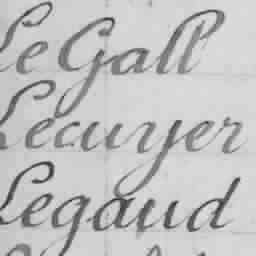 Le Gall
Lecuyer
Legaud